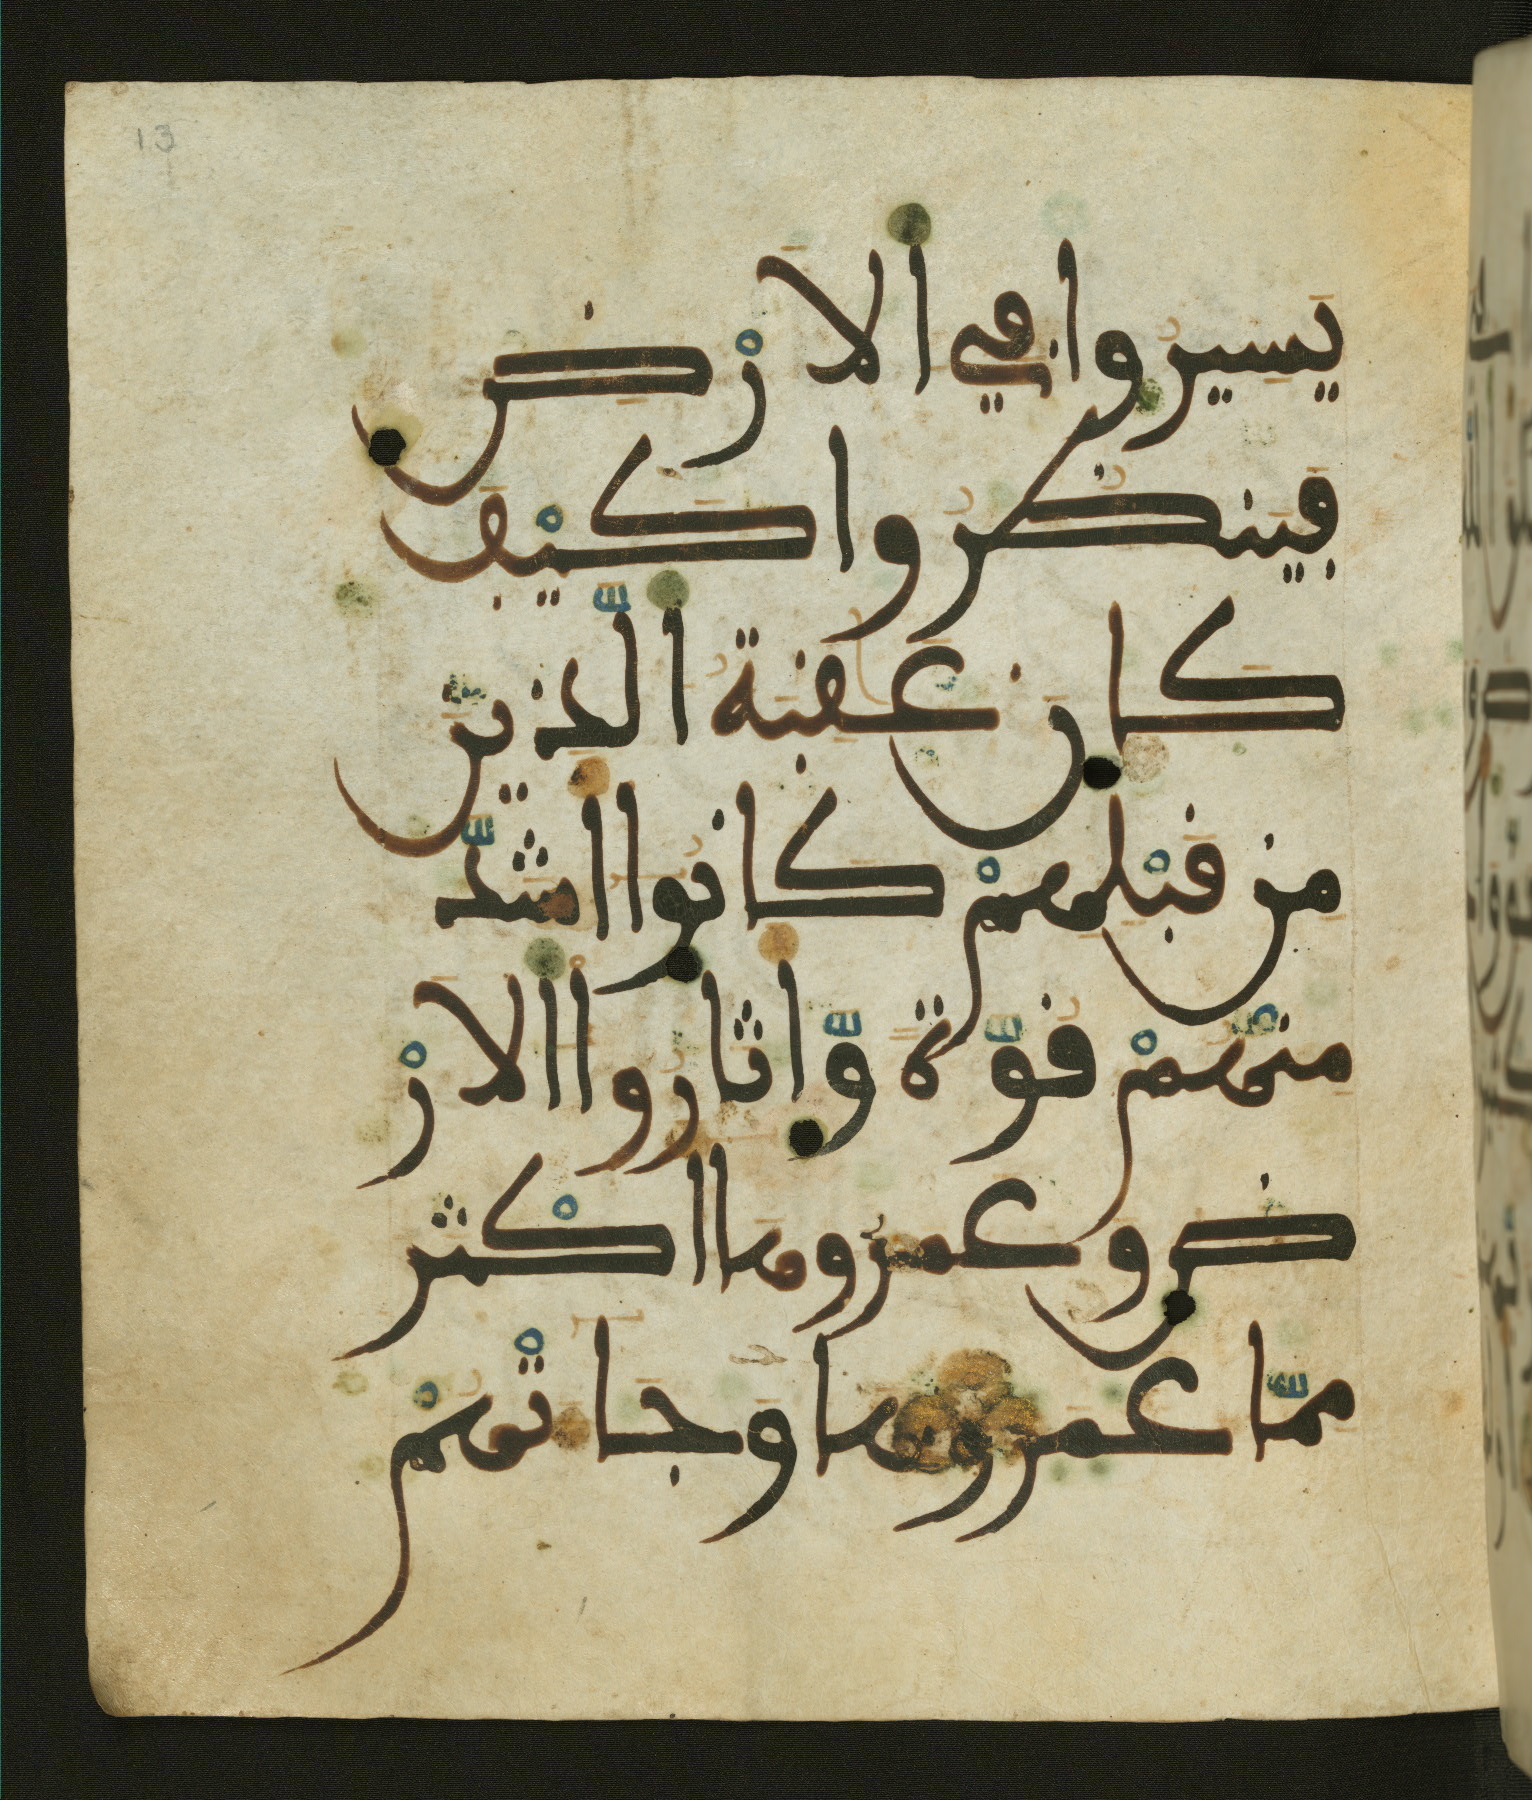 13
يسيروا في الارض
فينظروا كيف
كان عقبة الذين
من قبلهم كانوا اشد
منهم قوة واثاروا الار
ض وعمروها اكثر
مما عمروها وجاتهم